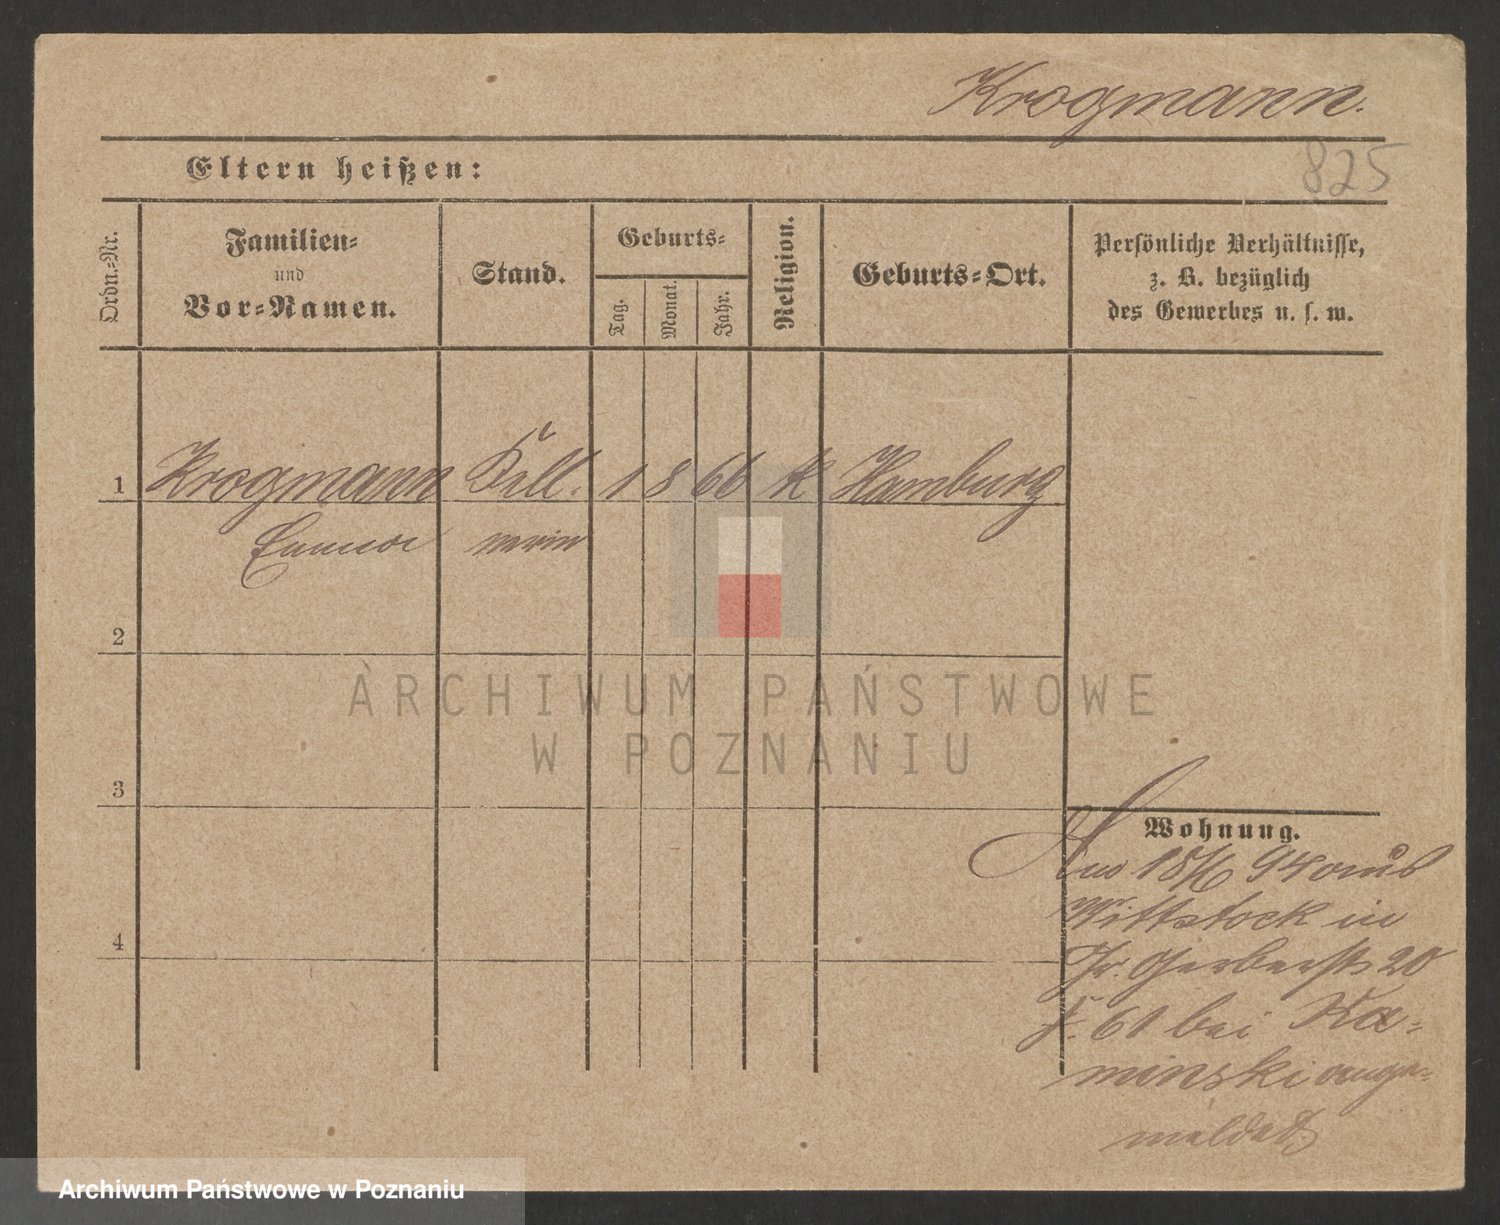 Krogmann.
825
Eltern heißen:
Ordn.-Nr.
Familien-
und
Vor-Namen.
Stand.
Geburts-
Tag.
Monat.
Jahr.
Religion.
Geburts-Ort.
Persönliche Verhältnisse,
z. B. bezüglich
des Gewerbes u. s. w.
1 Krogmann Kell. 1 8 66 k Hamburg
Emma nerin
2
3
4
Wohnung.
Am 18/6 94 aus
Wittstock in
Gr. Gerberstr 20
F. 61 bei Ka-
minski ange-
meldet.
ARCHIWUM PAŃSTWOWE
W POZNANIU
Archiwum Państwowe w Poznaniu